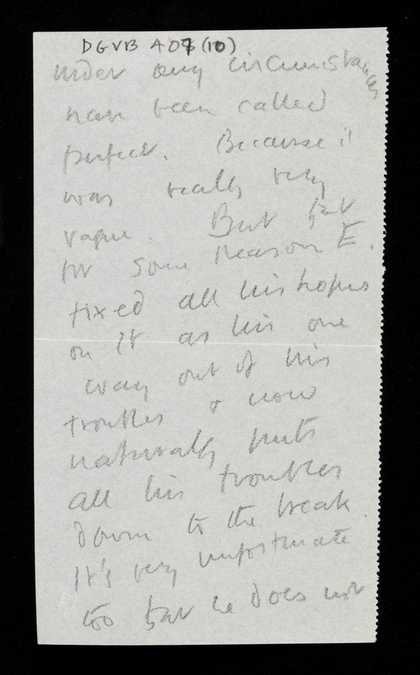 DGVB A07 (10)
under any circumstances
have been called
perfect. Because it
was really very
vague. But that
for some reason E.
fixed all his hopes
on it as his one
way out of his
troubles & now
naturally puts
all his troubles
down to the break.
It's very unfortunate
too that he does not